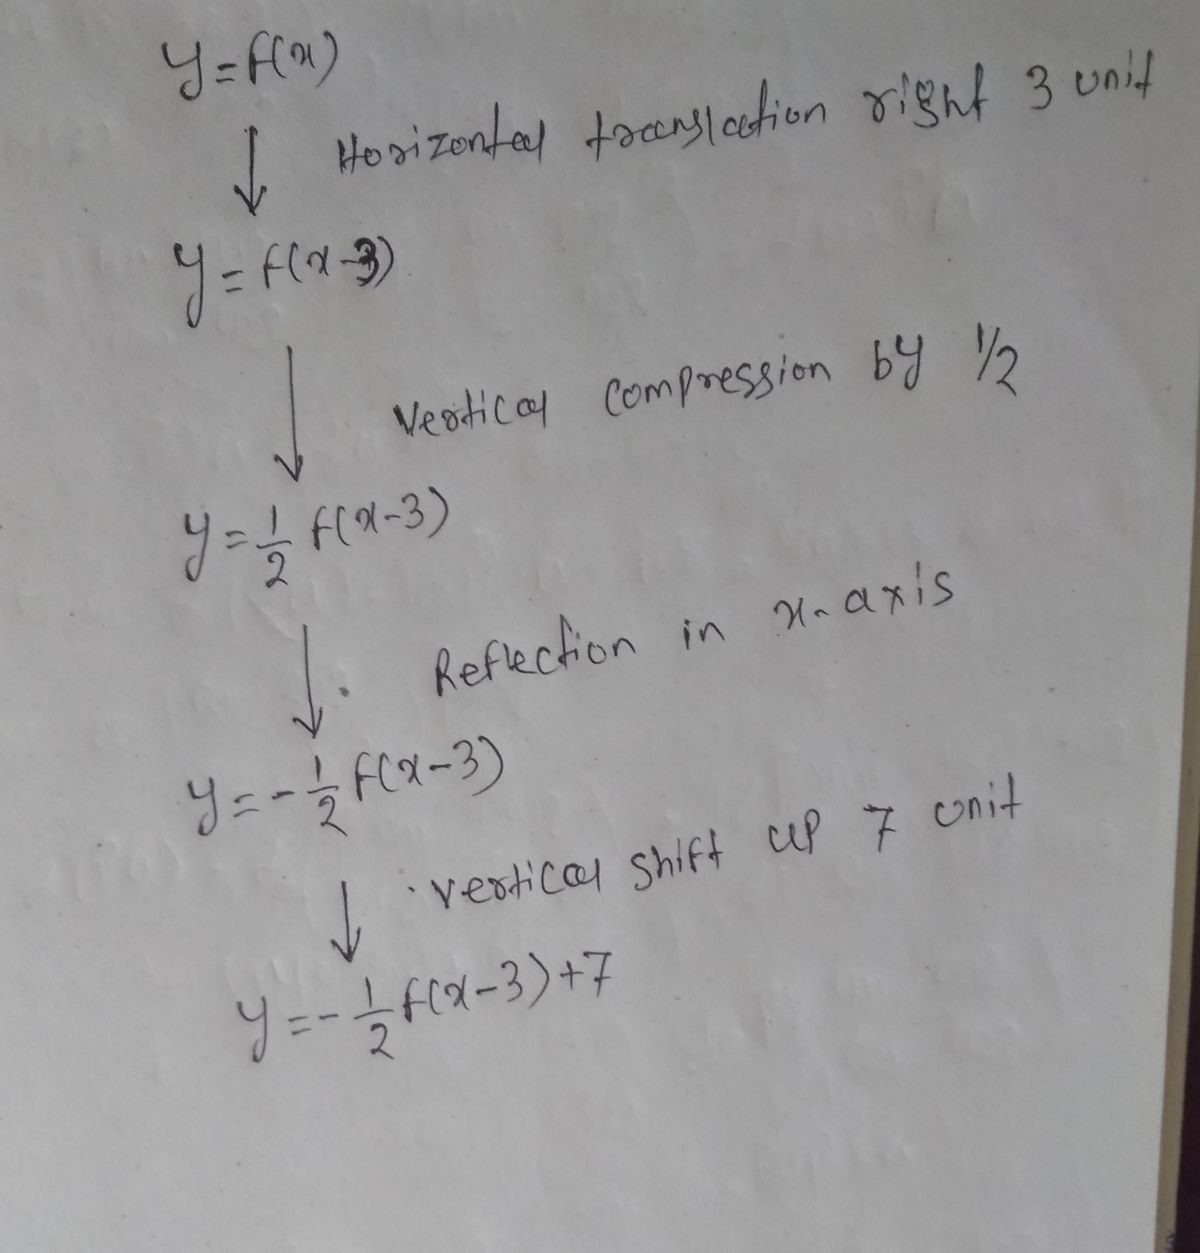 y=f(x)
Horizontal translation right 3 unit
y=f(x-3)
Vertical compression by 1/2
y=1/2 f(x-3)
Reflection in x-axis
y=-1/2 f(x-3)
vertical shift up 7 unit
y=-1/2 f(x-3)+7